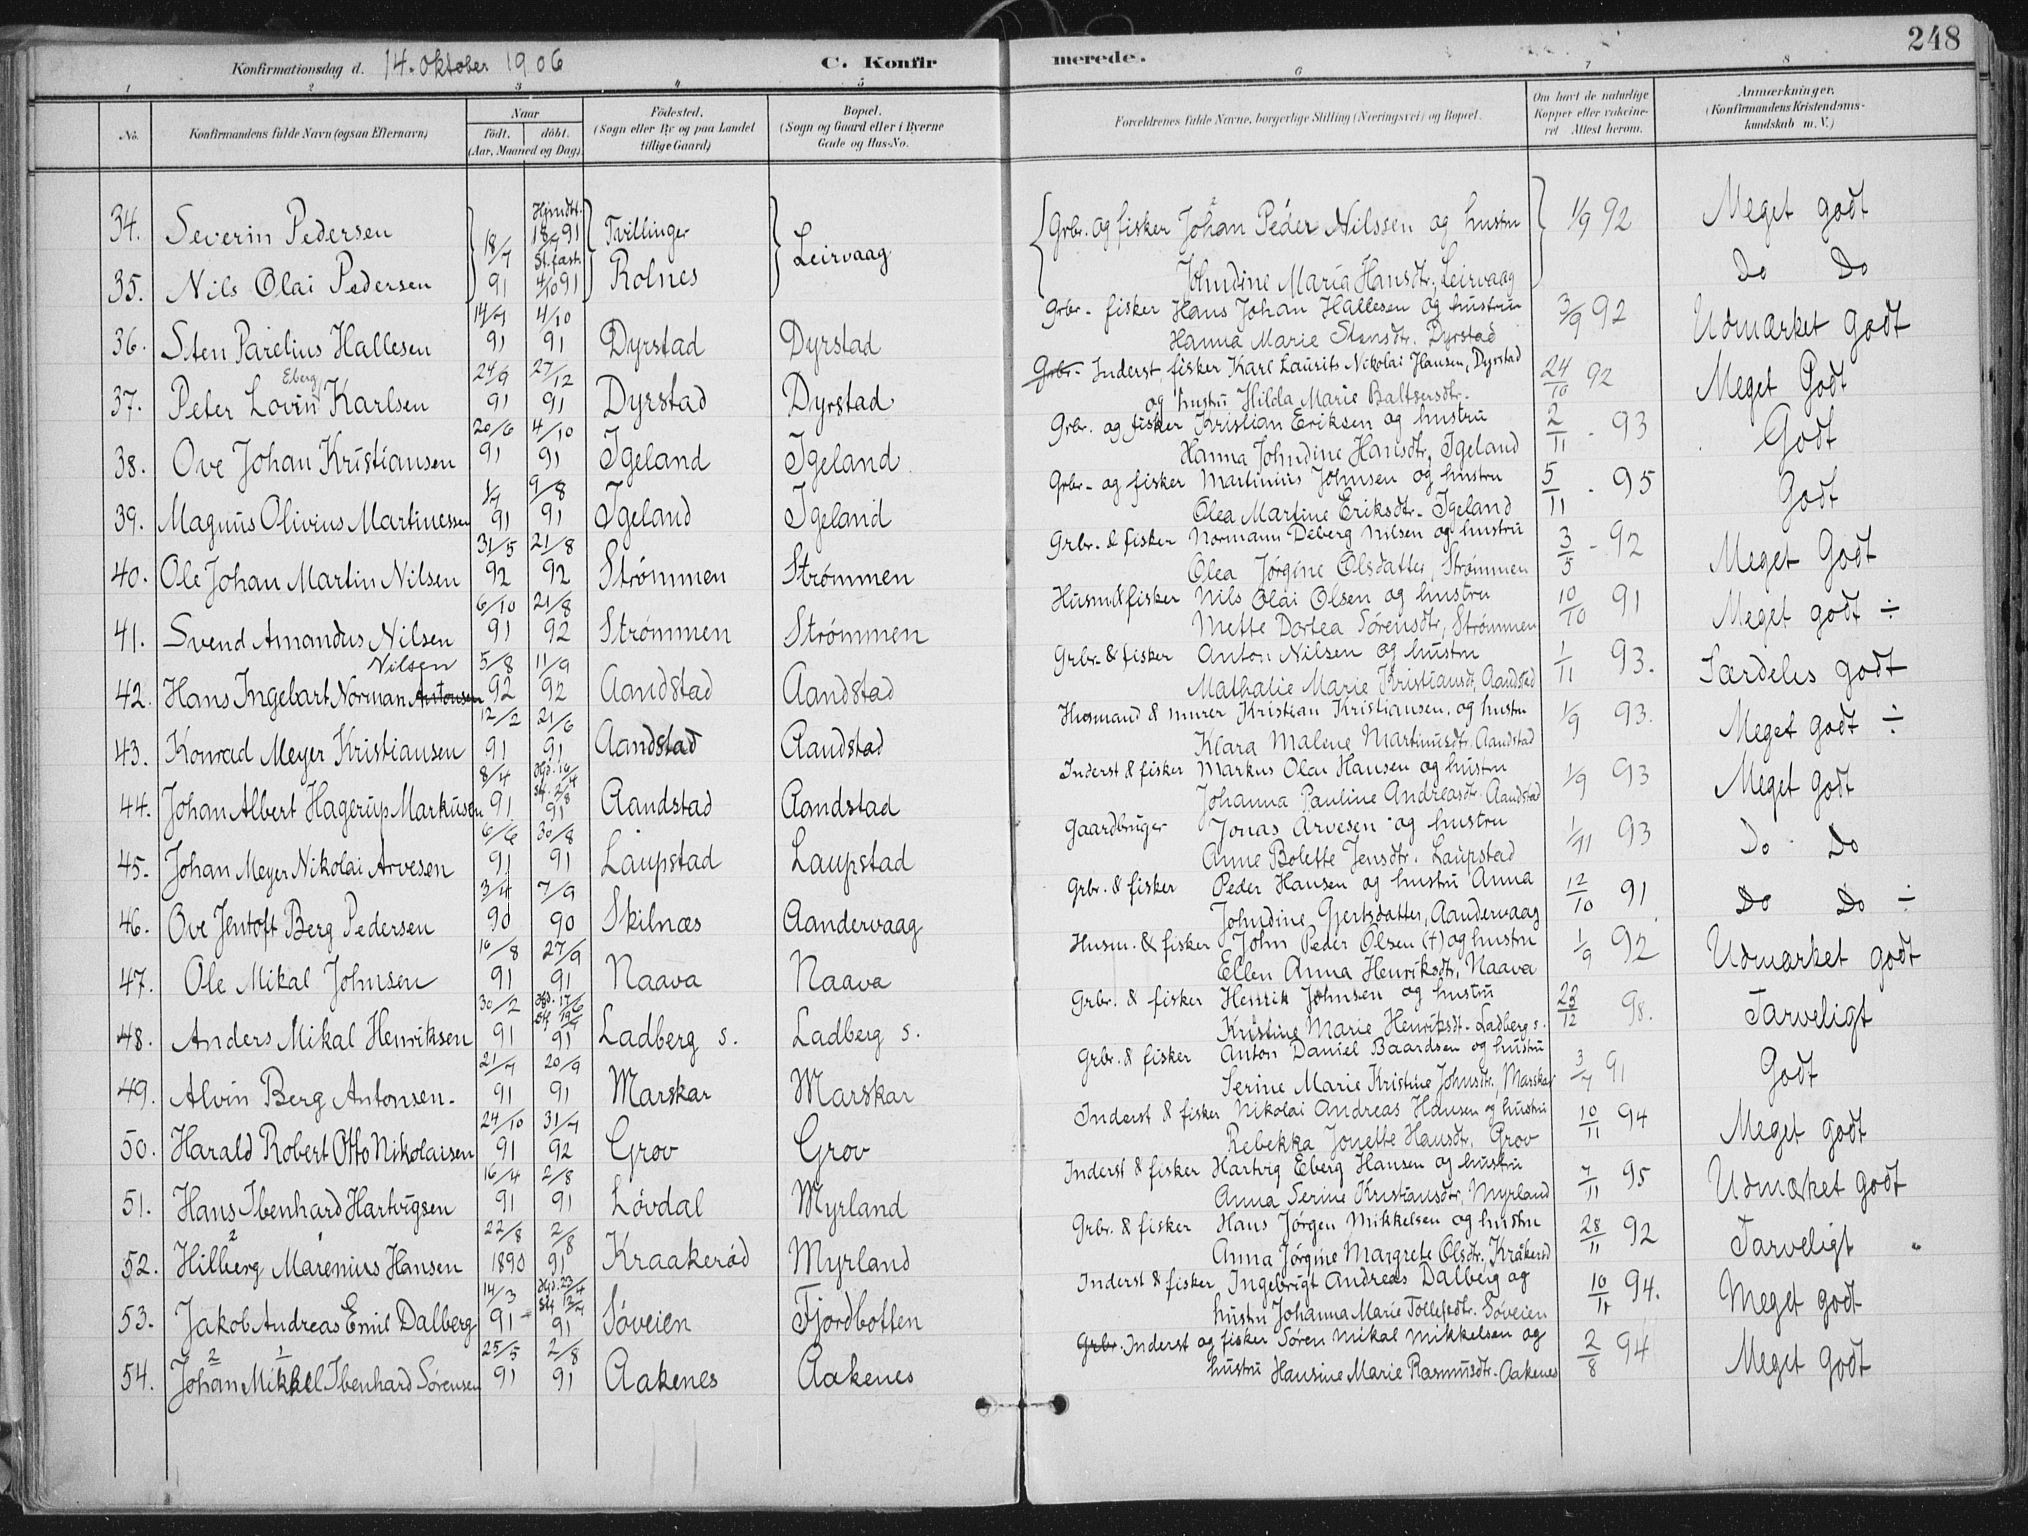 248
Konfirmationsdag d. 14. Oktober 1906 C. Konfirmerede.
1 2 3 4 5 6 7 8
No. Konfirmandens fulde Navn (ogsaa Efternavn) Naar født. døbt. (Aar, Maaned og Dag) Fødested. (Sogn eller By og paa Landet tillige Gaard) Bopæl. (Sogn og Gaard eller i Byerne Gade og Hus-No. Forældrenes fulde Navne, borgerlige Stilling (Næringsvei) og Bopæl. Om havt de naturlige Kopper eller vakcineret Attest herom. Anmærkninger. (Konfirmandens Kristendomskundskab m. V.)
34. Severin Pedersen 18/7 91 Hjmdt. 18/7 91 Tvillinger Rolnes Leirvaag Grbr. og fisker Johan Peder Nilssen og hustru 1/9 92 Meget godt
35. Nils Olai Pedersen St. fast. 4/10 91 Johndine Maria Hansdtr. Leirvaag Do Do
36. Sten Parelius Hallesen 14/7 91 4/10 91 Dyrstad Dyrstad Grbr. fisker Hans Johan Hallesen og hustru 3/9 92 Udmærket godt
Hanna Marie Stensdtr. Dyrstad
37. Peter Lovin Eberg Karlsen 24/9 91 27/12 91 Dyrstad Dyrstad Grbr. Inderst, fisker Karl Laurits Nikolai Hansen, Dyrstad 24/10 92 Meget Godt
og hustru Hilda Marie Baltsersdtr.
38. Ove Johan Kristiansen 20/6 91 4/10 91 Igeland Igeland Grbr. og fisker Kristian Eriksen og hustru 2/11 - 93 Godt
Hanna Johndine Hansdtr. Igeland
39. Magnus Olivius Martinessen 1/7 91 9/8 91 Igeland Igeland Grbr. og fisker Martinius Johnsen og hustru 5/11 - 95 Godt
Olea Martine Eriksdtr. Igeland
40. Ole Johan Martin Nilsen 31/5 92 21/8 92 Strømmen Strømmen Grbr. & fisker Normann Deberg Nilsen og hustru 3/5 - 92 Meget Godt
Olea Jørgine Olsdatter, Strømmen
41. Svend Amandus Nilsen 6/10 91 21/8 92 Strømmen Strømmen Husm. & fisker Nils Olai Olsen og hustru 10/10 91 Meget godt ÷
Mette Dortea Sørensdtr, Strømmen
42. Hans Ingebart Norman Antonsen Nilsen 5/8 92 11/9 92 Aandstad Aandstad Grbr. & fisker Anton Nilsen og hustru 1/11 93. Særdeles godt
Mathalie Marie Kristiansdt, Aandstad
43. Konrad Meyer Kristiansen 12/2 91 21/6 91 Aandstad Aandstad Husmand & murer Kristian Kristiansen, og hustru 1/9 93. Meget godt ÷
Klara Malene Martinusdtr. Aandstad
44. Johan Albert Hagerup Markusen 8/4 91 Hjd. 16/4 Stf. 2/8 91 Aandstad Aandstad Inderst & fisker Markus Olai Hansen og hustru 1/9 93 Meget godt
Johanna Pauline Andreasdtr. Aandstad
45. Johan Meyer Nikolai Arvesen 6/6 91 30/8 91 Laupstad Laupstad Gaardbruger Jonas Arvesen og hustru 1/11 93 Do. Do
Anne Bolette Jensdtr. Laupstad
46. Ove Jentoft Berg Pedersen 3/4 90 7/9 90 Skilnæs Aandervaag Grbr. & fisker Peder Hansen og hustru Anna 12/10 91 Do Do ÷
Johndine Gjertsdatter, Aandervaag
47. Ole Mikal Johnsen 16/8 91 27/9 91 Naava Naava Husm. & fisker John Peder Olsen (†) og hustru 1/9 92 Udmærket godt
Ellen Anna Henriksdtr, Naava
48. Anders Mikal Henriksen 30/2 91 Hjd. 17/6 Stf. 19/7 91 Ladberg s. Ladberg s. Grbr. & fisker Henrik Johnsen og hustru 12 98. Tarveligt
Kristine Marie Henriksdt. Ladberg s.
49. Alvin Berg Antonsen. 21/7 91 20/9 91 Marskar Marskar Grbr. & fisker Anton Daniel Baardsen og hustru 3/7 91 Godt
Serine Marie Kristine Johnsdtr, Marskar
50. Harald Robert Otto Nikolaisen 24/10 91 31/7 92 Grov Grov Inderst & fisker Nikolai Andreas Hansen og hustru 10/11 94 Meget godt
Rebekka Jonette Hansdtr. Grov
51. Hans Ibenhard Hartvigsen 16/4 91 2/8 91 Løvdal Myrland Inderst & fisker Hartvig Eberg Hansen og hustru 7/11 95 Udmærket godt
Anna Serine Kristiansdtr. Myrland
52. Hilberg Marenius Hansen 22/8 1890 2/8 91 Kraakerød Myrland Grbr. & fisker Hans Jørgen Mikkelsen og hustru 28/11 92 Tarveligt
Anna Jørgine Margrete Olsdtr, Kråkerød
53. Jakob Andreas Emil Dalberg 14/3 91 Hjd. 23/4 Stf. 12/7 91 Søveien Fjordbotten Inderst & fisker Ingebrigt Andreas Dalberg og 10/11 94. Meget godt
hustru Johanna Marie Tollefsdtr. Søveien
54. Johan Mikkel Ibenhard Sørensen 25/5 91 2/8 91 Aakenes Aakenes Grbr. Inderst og fisker Søren Mikal Mikkelsen og 2/8 94 Meget godt
hustru Hansine Marie Rasmusdtr. Aakenes